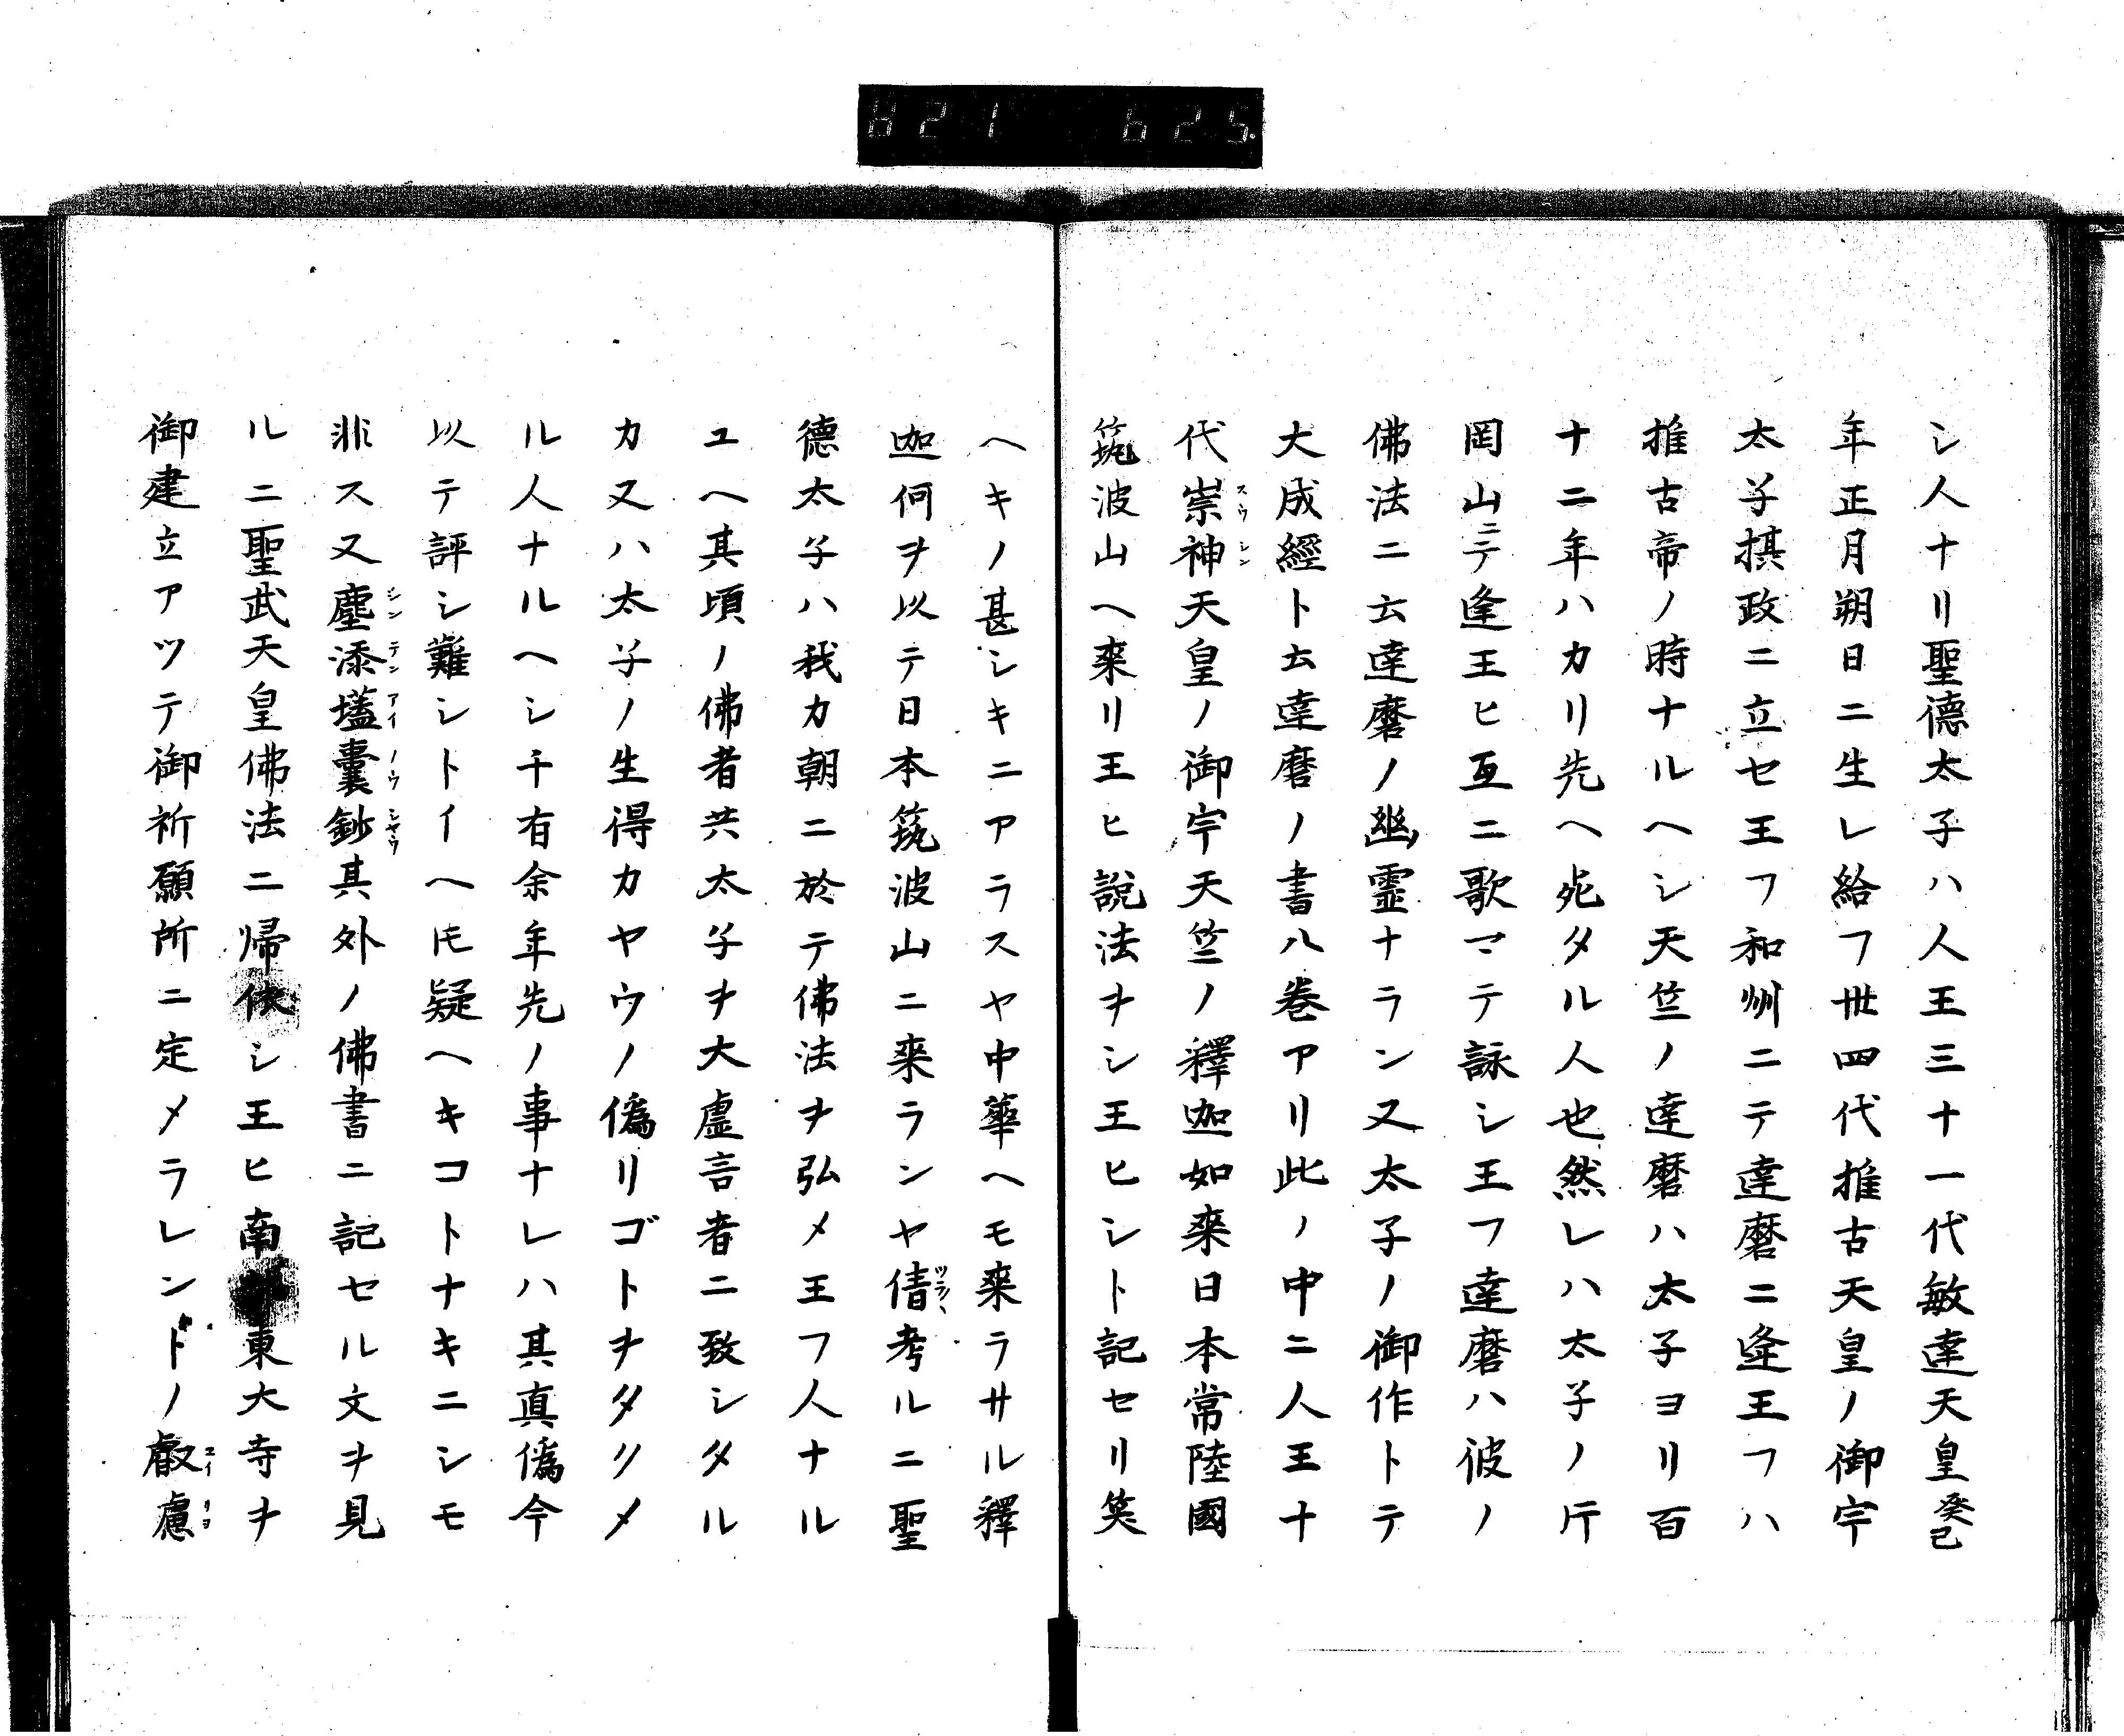 821 625
シ人ナリ聖德太子ハ人王三十一代敏達天皇癸巳
年正月朔日ニ生レ給フ丗四代推古天皇ノ御宇
太子摂政ニ立セ玉フ和州ニテ達磨ニ逢玉フハ
推古帝ノ時ナルヘシ天竺ノ達磨ハ太子ヨリ百
十二年ハカリ先ヘ死タル人也然レハ太子ノ片
岡山ニテ逢玉ヒ互ニ歌マテ詠シ玉フ達磨ハ彼ノ
佛法ニ云達磨ノ幽靈ナラン又太子ノ御作トテ
大成經ト云達磨ノ書八巻アリ此ノ中ニ人王十
代崇神スウシン天皇ノ御宇天竺ノ釋迦如来日本常陸國
筑波山ヘ来リ玉ヒ説法ヲシ玉ヒシト記セリ笑
ヘキノ甚シキニアラスヤ中華ヘモ来ラサル釋
迦何ヲ以テ日本筑波山ニ来ランヤ倩ツラ〱考ルニ聖
德太子ハ我カ朝ニ於テ佛法ヲ弘メ玉フ人ナル
ユヘ其頃ノ佛者共太子ヲ大虚言者ニ致シタル
カ又ハ太子ノ生得カヤウノ偽リゴトヲタクメ
ル人ナルヘシ千有余年先ノ事ナレハ其真偽今
以テ評シ難シトイヘ𪜈疑ヘキコトナキニシモ
非ス又塵添壒囊鈔シンテンアイノウシヤウ其外ノ佛書ニ記セル文ヲ見
ルニ聖武天皇佛法ニ帰依シ玉ヒ南東大寺ヲ
御建立アツテ御祈願所ニ定メラレントノ叡慮エイリヨ